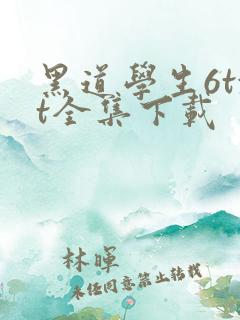 黑道學生6tx
t全集下載
林暉
未经同意禁止转载